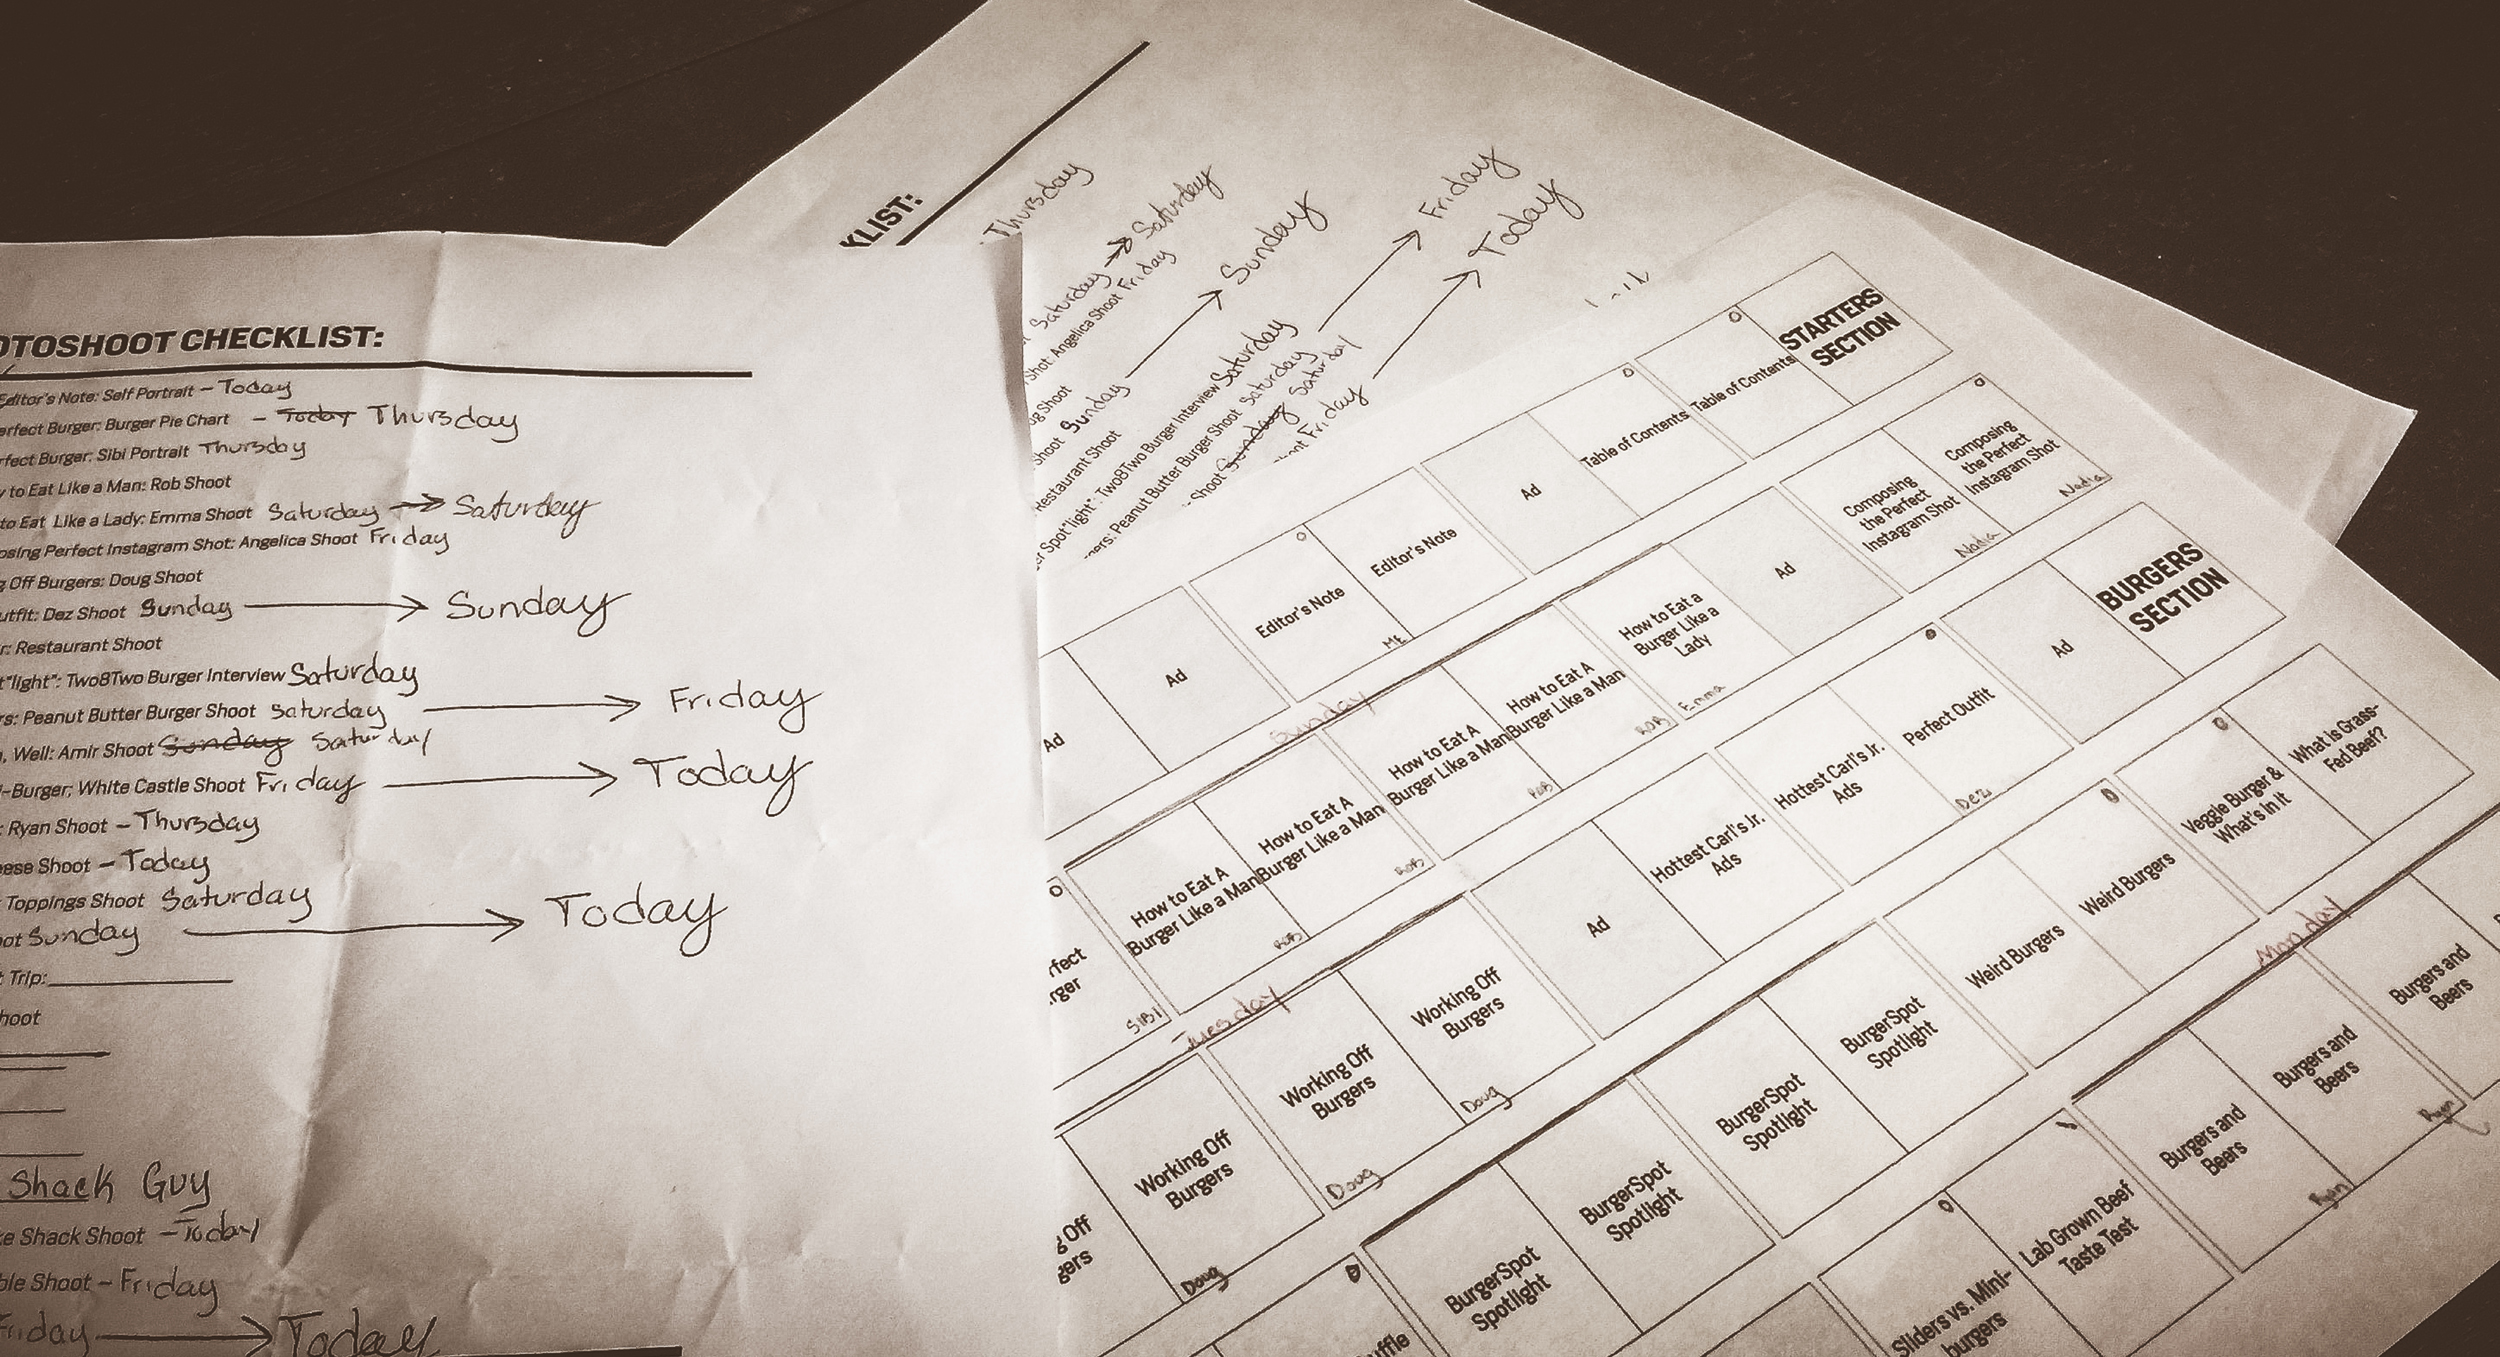 OTOSHOOT CHECKLIST:
Editor's Note: Self Portrait – Today
erfect Burger: Burger Pie Chart – Today Thursday
rfect Burger: Sibi Portrait Thursday
y to Eat Like a Man: Rob Shoot
to Eat Like a Lady: Emma Shoot Saturday → Saturday
osing Perfect Instagram Shot: Angelica Shoot Friday
g Off Burgers: Doug Shoot
utfit: Dez Shoot Sunday → Sunday
r: Restaurant Shoot
t"light": Two8Two Burger Interview Saturday
rs: Peanut Butter Burger Shoot Saturday → Friday
, Well: Amir Shoot Sunday Saturday
-Burger: White Castle Shoot Friday → Today
: Ryan Shoot – Thursday
eese Shoot – Today
Toppings Shoot Saturday
oot Sunday → Today
t Trip:
hoot
Shack Guy
ke Shack Shoot – Today
ble Shoot – Friday
Friday → Today
KLIST:
Thursday
Saturday → Saturday
Shot: Angelica Shoot Friday
ug Shoot
Shoot Sunday → Sunday
Restaurant Shoot
er Spot"light": Two8Two Burger Interview Saturday
ers: Peanut Butter Burger Shoot Saturday → Friday
Shoot Sunday Saturday
oot Friday → Today
STARTERS
SECTION
Table of Contents
Table of Contents
Ad
Editor's Note
Editor's Note
Ad
Ad
Composing
the Perfect
Instagram Shot
Nadia
Composing
the Perfect
Instagram Shot
Nadia
Ad
How to Eat a
Burger Like a
Lady
Emma
Sunday
How to Eat A
Burger Like a Man
ROB
How to Eat A
Burger Like a Man
ROB
How to Eat A
Burger Like a Man
ROB
How to Eat A
Burger Like a Man
ROB
rfect
rger
SIBI
BURGERS
SECTION
Ad
Perfect Outfit
Dez
Hottest Carl's Jr.
Ads
Hottest Carl's Jr.
Ads
Ad
Tuesday
Working Off
Burgers
Doug
Working Off
Burgers
Doug
Working Off
Burgers
Doug
g Off
gers
What is Grass-
Fed Beef?
Veggie Burger &
What's in It
Weird Burgers
Weird Burgers
BurgerSpot
Spotlight
BurgerSpot
Spotlight
BurgerSpot
Spotlight
BurgerSpot
Spotlight
Monday
Burgers and
Beers
Burgers and
Beers
Ryan
Burgers and
Beers
Ryan
Lab Grown Beef
Taste Test
Sliders vs. Mini-
burgers
uffle